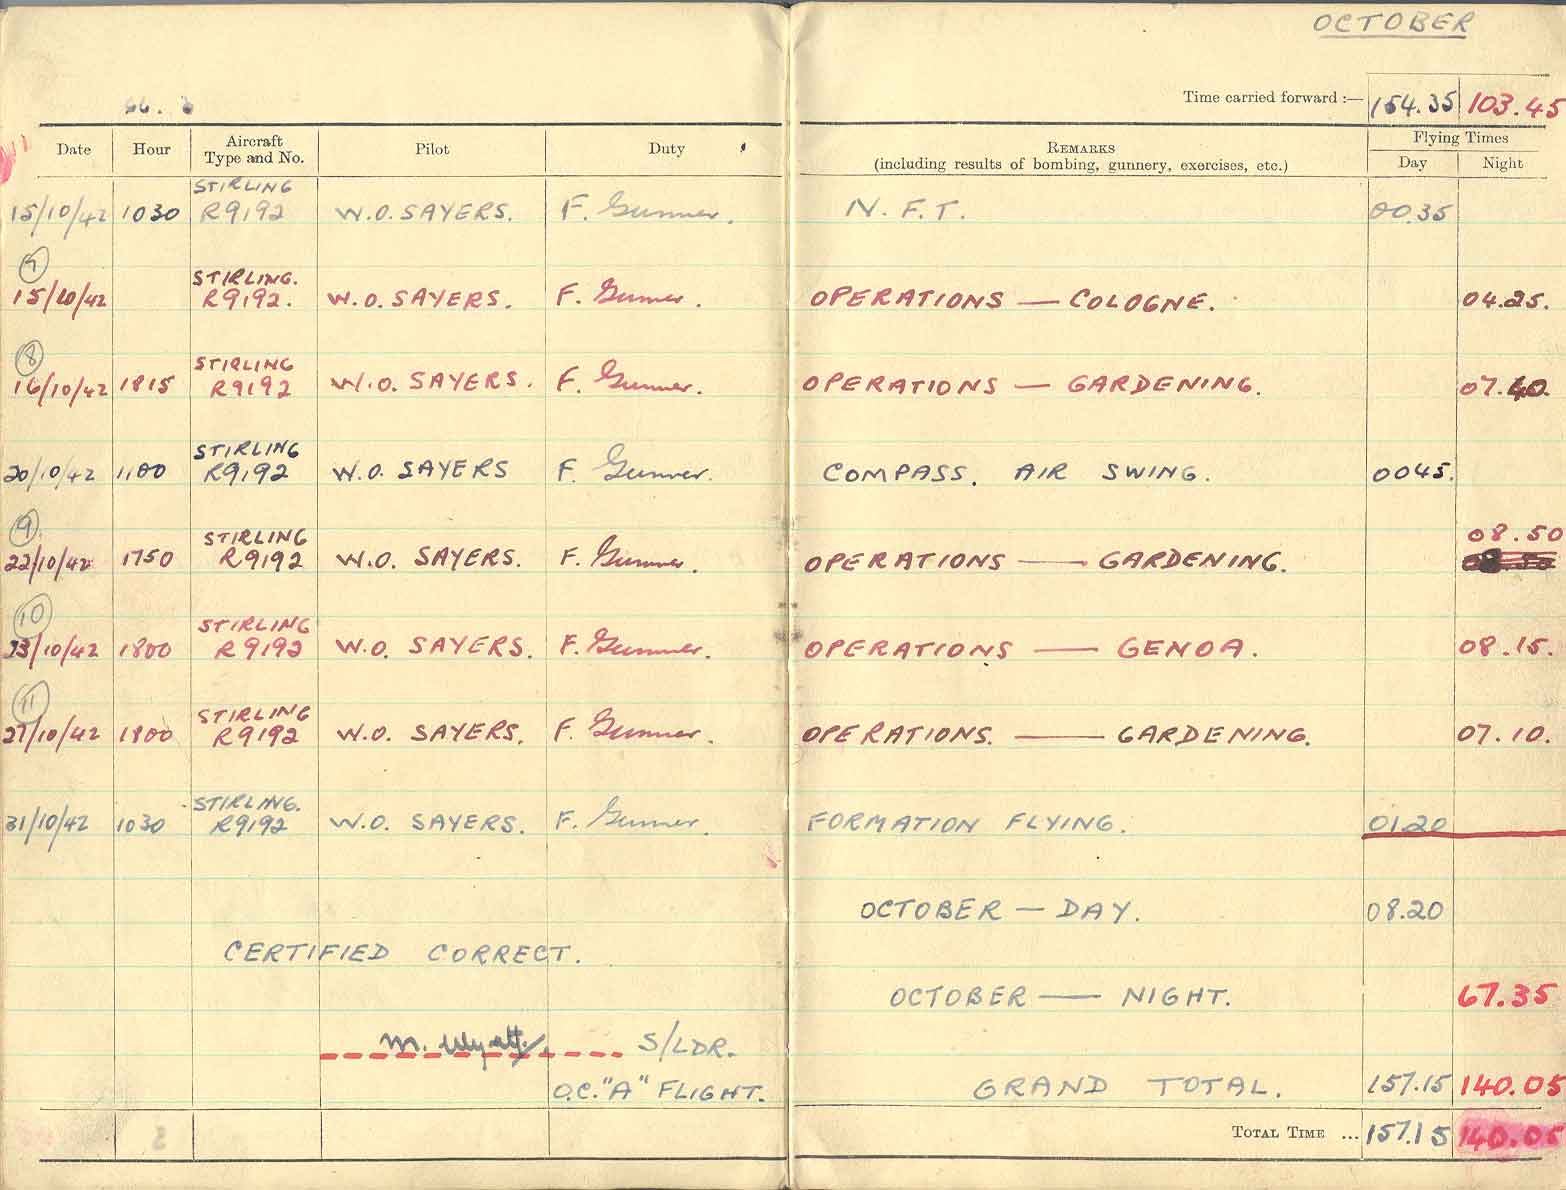 OCTOBER
Time carried forward :— 154.35 103.45
Date Hour Aircraft Type and No. Pilot Duty REMARKS (including results of bombing, gunnery, exercises, etc.) Flying Times Day Night
15/10/42 1030 STIRLING R9192 W.O. SAYERS. F. Gunner. N.F.T. 00.35
7
15/10/42 STIRLING. R9192. W.O. SAYERS. F. Gunner. OPERATIONS — COLOGNE. 04.25.
8
16/10/42 1815 STIRLING R9192 W.O. SAYERS. F. Gunner. OPERATIONS — GARDENING. 07.40.
20/10/42 1100 STIRLING R9192 W.O. SAYERS F. Gunner. COMPASS. AIR SWING. 0045.
9
22/10/42 1750 STIRLING R9192 W.O. SAYERS. F. Gunner. OPERATIONS — GARDENING. 08.50
10
23/10/42 1800 STIRLING R9192 W.O. SAYERS. F. Gunner. OPERATIONS — GENOA. 08.15.
11
27/10/42 1800 STIRLING R9192 W.O. SAYERS. F. Gunner. OPERATIONS. — GARDENING. 07.10.
31/10/42 1030 STIRLING. R9192 W.O. SAYERS. F. Gunner. FORMATION FLYING. 01.20
OCTOBER — DAY. 08.20
CERTIFIED CORRECT.
OCTOBER — NIGHT. 67.35
M. Wyatt. S/LDR.
O.C. "A" FLIGHT. GRAND TOTAL. 157.15 140.05
TOTAL TIME ... 157.15 140.05